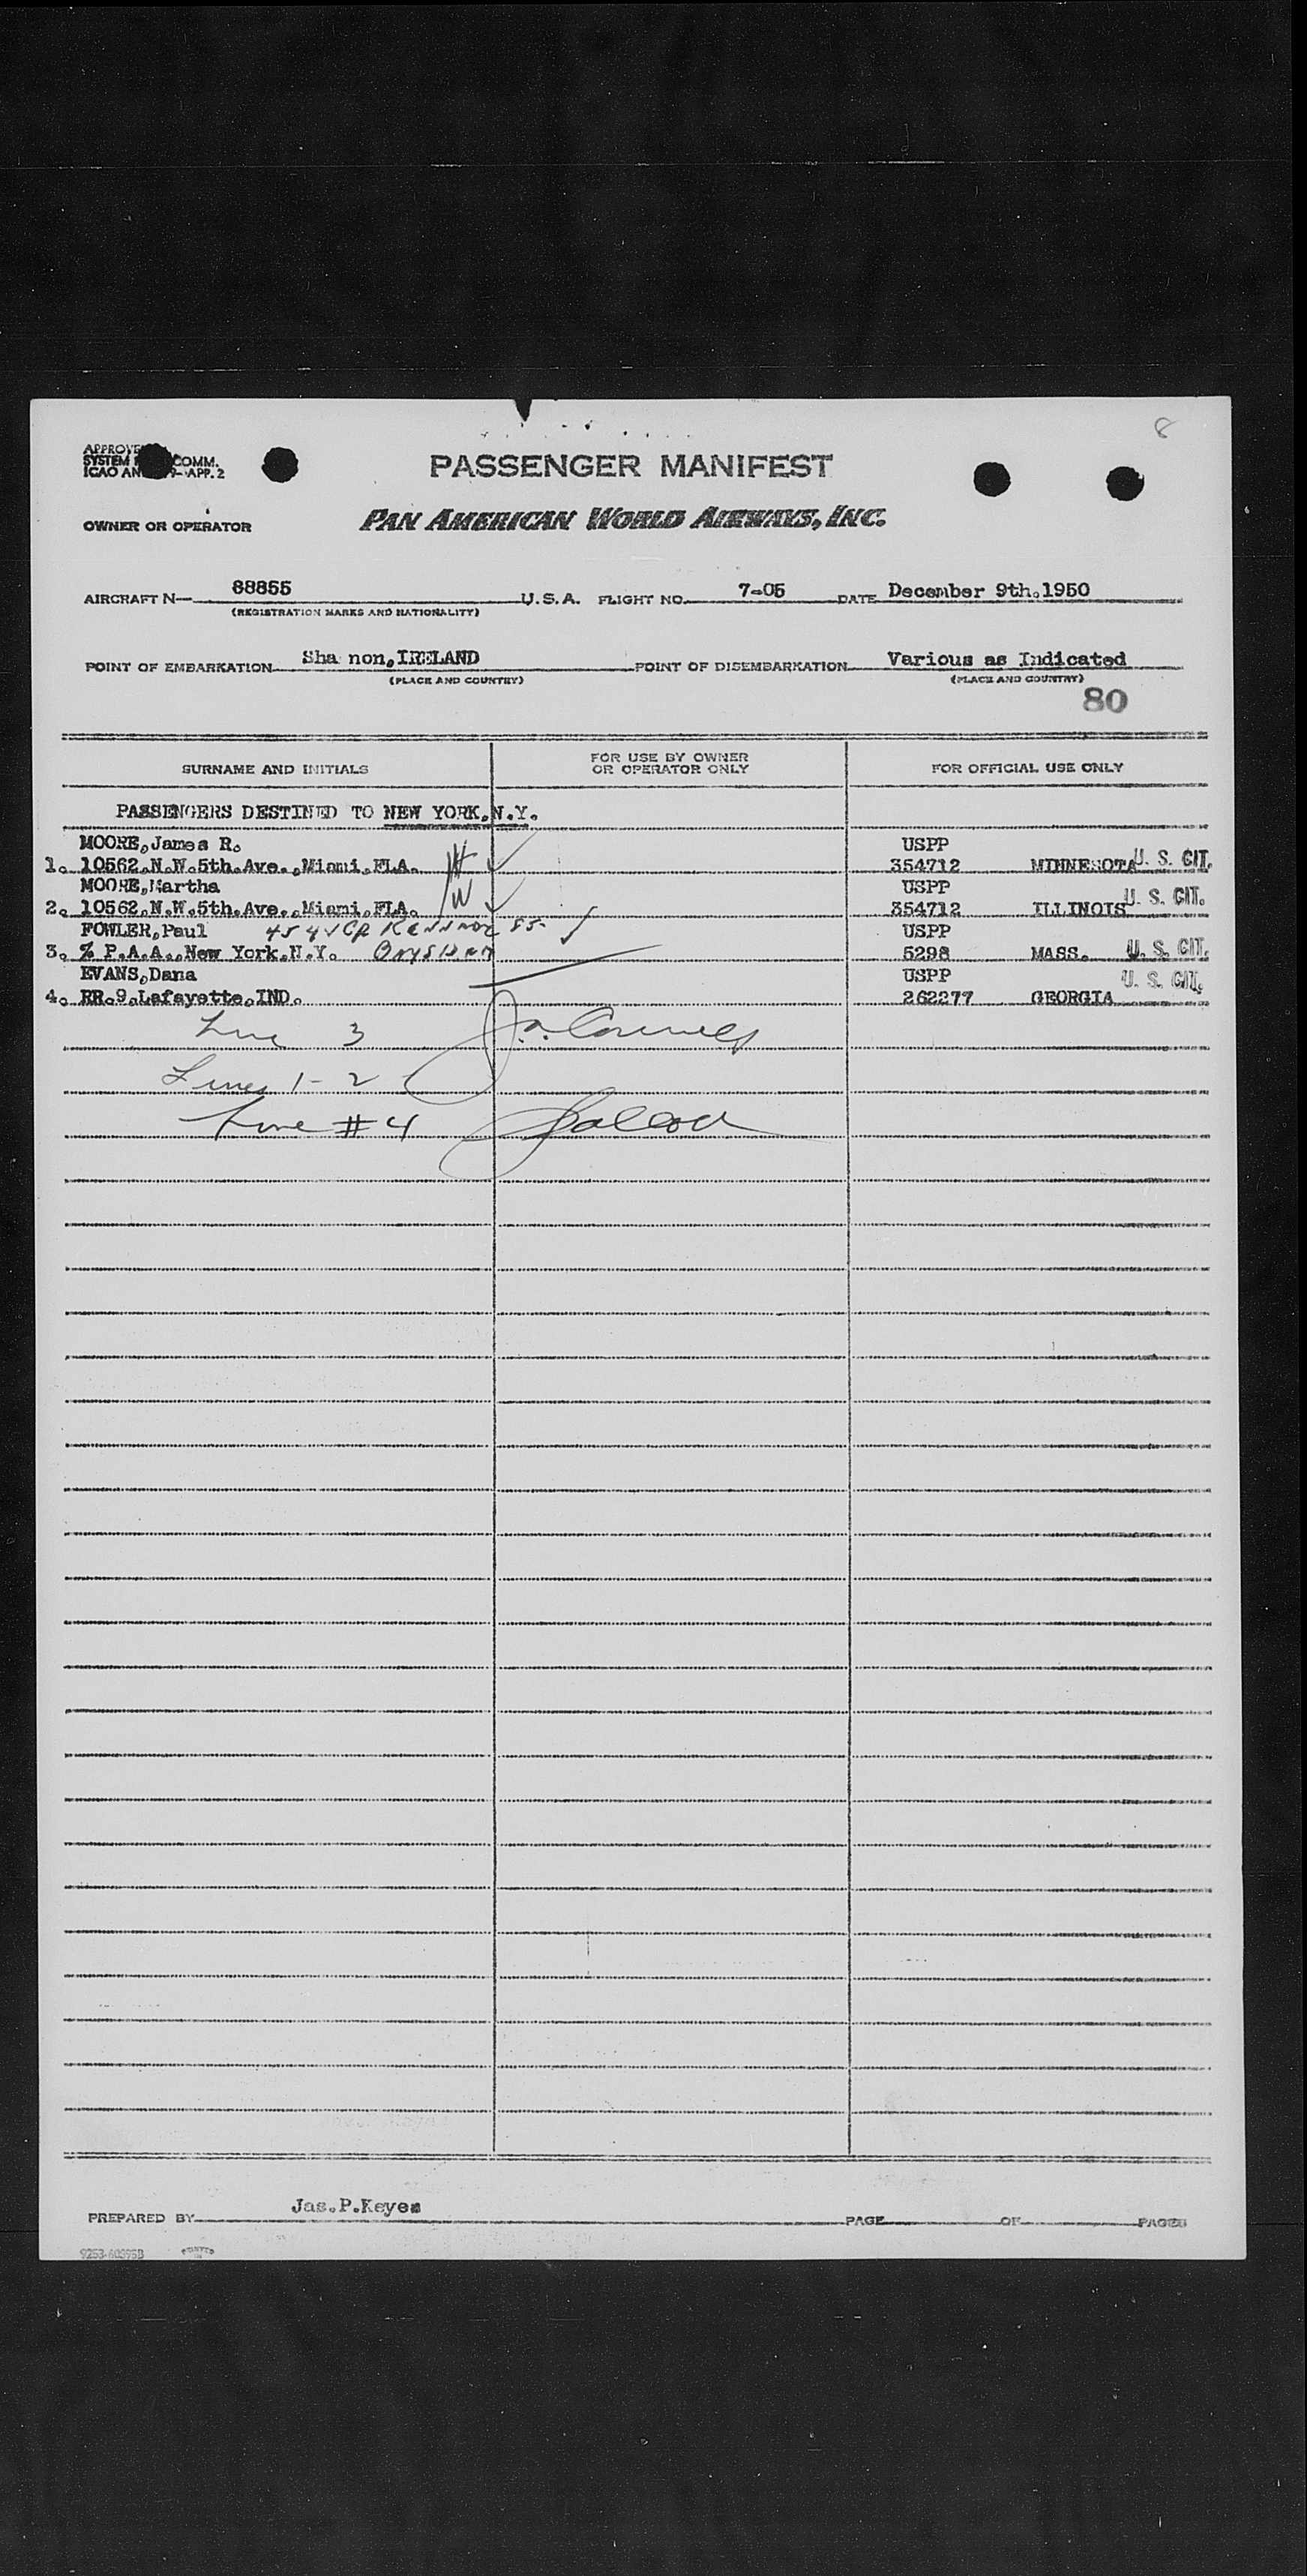 8
APPROVE
SYSTEM COMM.
ICAO AN 9-APP.2
PASSENGER MANIFEST
OWNER OR OPERATOR PAN AMERICAN WORLD AIRWAYS, INC.
AIRCRAFT N— 88855 U.S.A. FLIGHT NO. 7-05 DATE December 9th.1950
(REGISTRATION MARKS AND NATIONALITY)
POINT OF EMBARKATION Sha non,IRELAND POINT OF DISEMBARKATION Various as Indicated
(PLACE AND COUNTRY) (PLACE AND COUNTRY)
80
SURNAME AND INITIALS FOR USE BY OWNER OR OPERATOR ONLY FOR OFFICIAL USE ONLY
PASSENGERS DESTINED TO NEW YORK,N.Y.
MOORE,James R. USPP
1. 10562.N.W.5th.Ave.,Miami,FLA. H 354712 MINNESOTA U. S. CIT.
MOORE,Martha W USPP
2. 10562.N.W.5th.Ave.,Miami,FLA. 354712 ILLINOIS U. S. CIT.
FOWLER,Paul USPP
3. % P.A.A.,New York.N.Y. 5298 MASS. U. S. CIT.
EVANS,Dana USPP
4. RR.9,Lafayette,IND. 262277 GEORGIA U. S. CIT.
Line 3
Lines 1-2
Line #4
PREPARED BY Jas.P.Keyes PAGE OF PAGES
9253-60395B